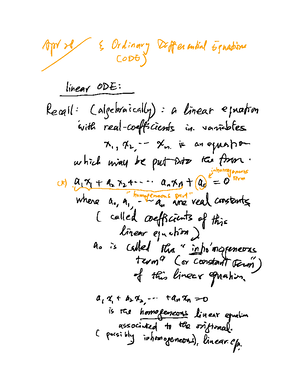 Apr 28 § Ordinary Differential Equation
(ODE)
linear ODE:
Recall: (algebraically): a linear equation
with real-coefficients in variables
x₁, x₂, ... xₙ is an equation
which may be put into the form.
inhomogeneous
term
(*) a₁x₁ + a₂x₂ + ... aₙxₙ + a₀ = 0
"homogeneous part"
where a₀, a₁, ... aₙ are real constants
( called coefficients of this
linear equation )
a₀ is called the "inhomogeneous
term" (or constant term")
of this linear equation.
a₁x₁ + a₂x₂ ... + aₙxₙ = 0
is the homogeneous linear equation
associated to the original
( possibly inhomogeneous), linear eq.